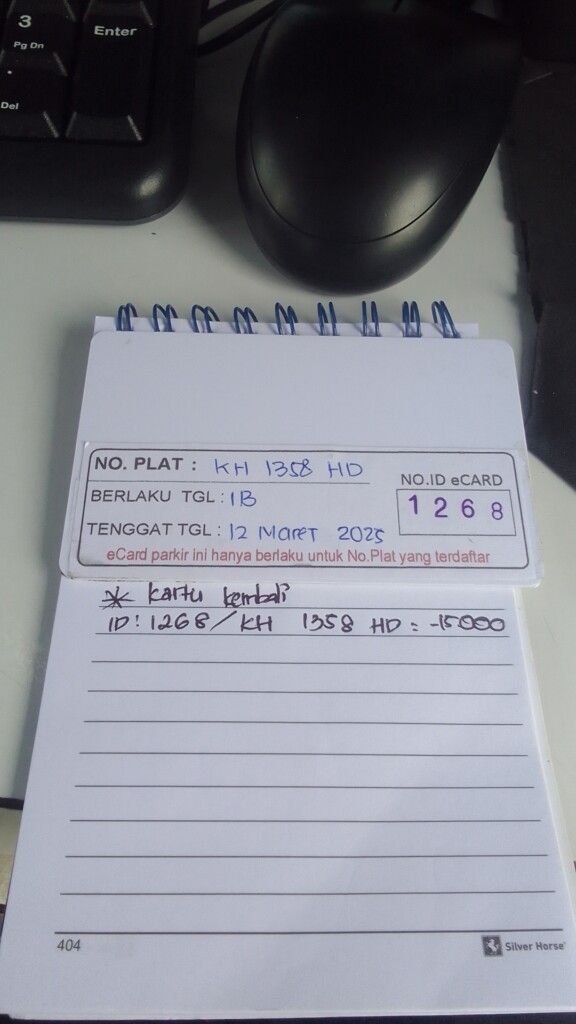 3
Pg Dn
Enter
.
Del
NO. PLAT : KH 1358 HD
NO.ID eCARD
BERLAKU TGL : 1B
1 2 6 8
TENGGAT TGL : 12 MARET 2025
eCard parkir ini hanya berlaku untuk No.Plat yang terdaftar
* kartu kembali
ID: 1268 / KH 1358 HD = -15.000
404
Silver Horse